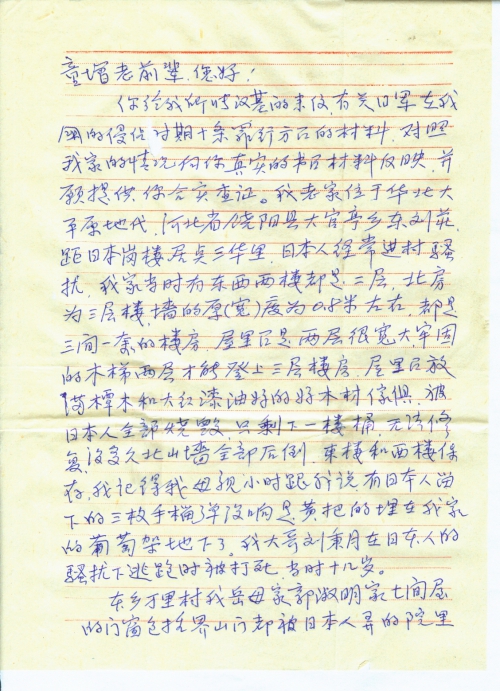 童增老前辈.您好!
你给我所时汉基的来仪,有关日军在我
国的侵佔时期十条罪行方面的材料.对照
我家的情况向你真实的书面材料反映,并
愿提供.你会实查证。我老家位于华北大
平原地代,河北省饶阳县大官亭乡东刘莊,
距日本岗楼居貟三华里,日本人经常进村骚
扰,我家当时有东西两楼都是二层,北房
为三层楼,墙的厚(宽)度为0.8米左右,都是
三间一套的楼房,屋里面是两层很宽大,牢固
的木梯两层才能登上三层楼房,屋里面放
满樟木和大红漆油好的好木材傢俱,被
日本人全部烧毁,只剩下一楼桶,无法修
复,没多久北山墙全部后倒,東楼和西楼保
存,我记得我母亲小时跟我说,有日本人留
下的三枚手榴弹没响是黄把的埋在我家
的葡萄架地下了。我大哥刘秉月在日本人的
骚扰下逃跑时被打死,当时十几岁。
东乡万里村我岳母家郭淑明家七间屋
的门窗包括界山门都被日本人弄的院里